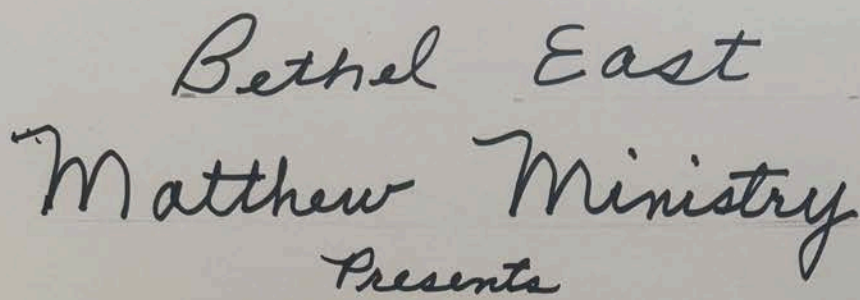 Bethel East
Matthew Ministry
Presents